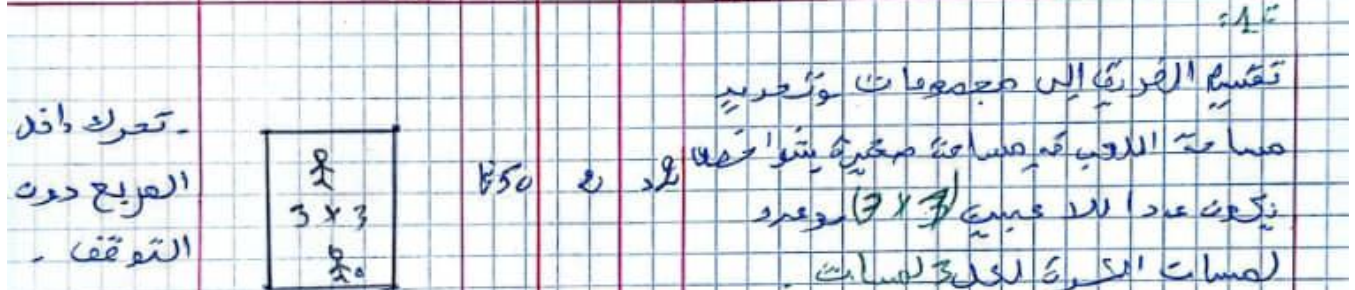 ت1:
تقسيم الفريق إلى مجموعات وتحديد
مساحة اللعب في مساحة صغيرة
يكون عدد اللاعبين (3 × 3) وعدد
لمسات الكرة لكل 3 لمسات.
2د
2
50%
3 × 3
- تحرك داخل
المربع دون
التوقف -